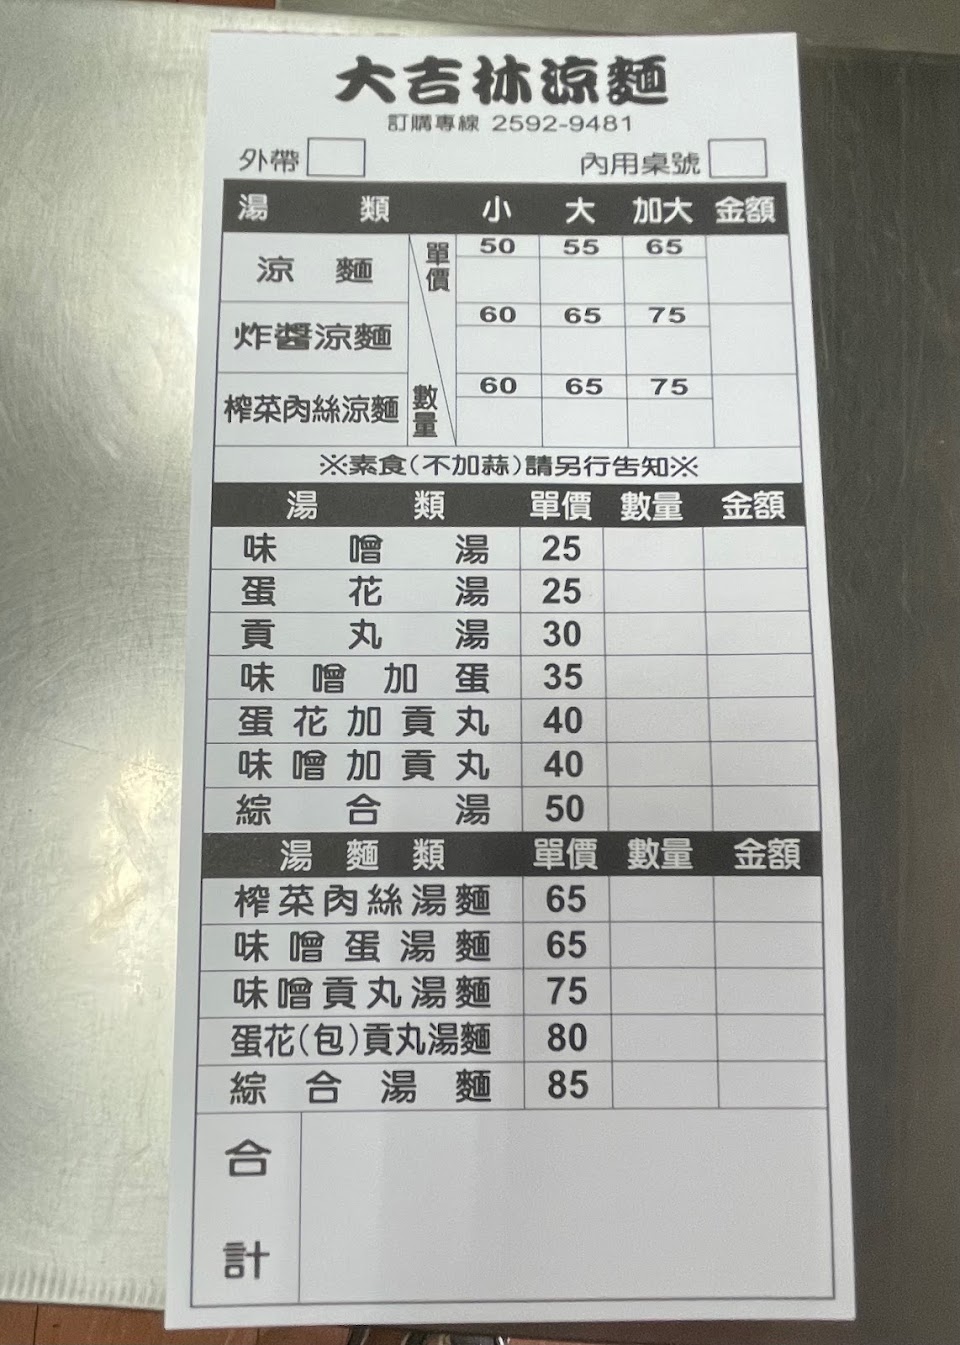 大吉林涼麵
訂購專線 2592-9481
外帶 內用桌號
湯類 小 大 加大 金額
單價 50 55 65
涼麵
60 65 75
炸醬涼麵
數量 60 65 75
榨菜肉絲涼麵
※素食(不加蒜)請另行告知※
湯類 單價 數量 金額
味噌湯 25
蛋花湯 25
貢丸湯 30
味噌加蛋 35
蛋花加貢丸 40
味噌加貢丸 40
綜合湯 50
湯麵類 單價 數量 金額
榨菜肉絲湯麵 65
味噌蛋湯麵 65
味噌貢丸湯麵 75
蛋花(包)貢丸湯麵 80
綜合湯麵 85
合計